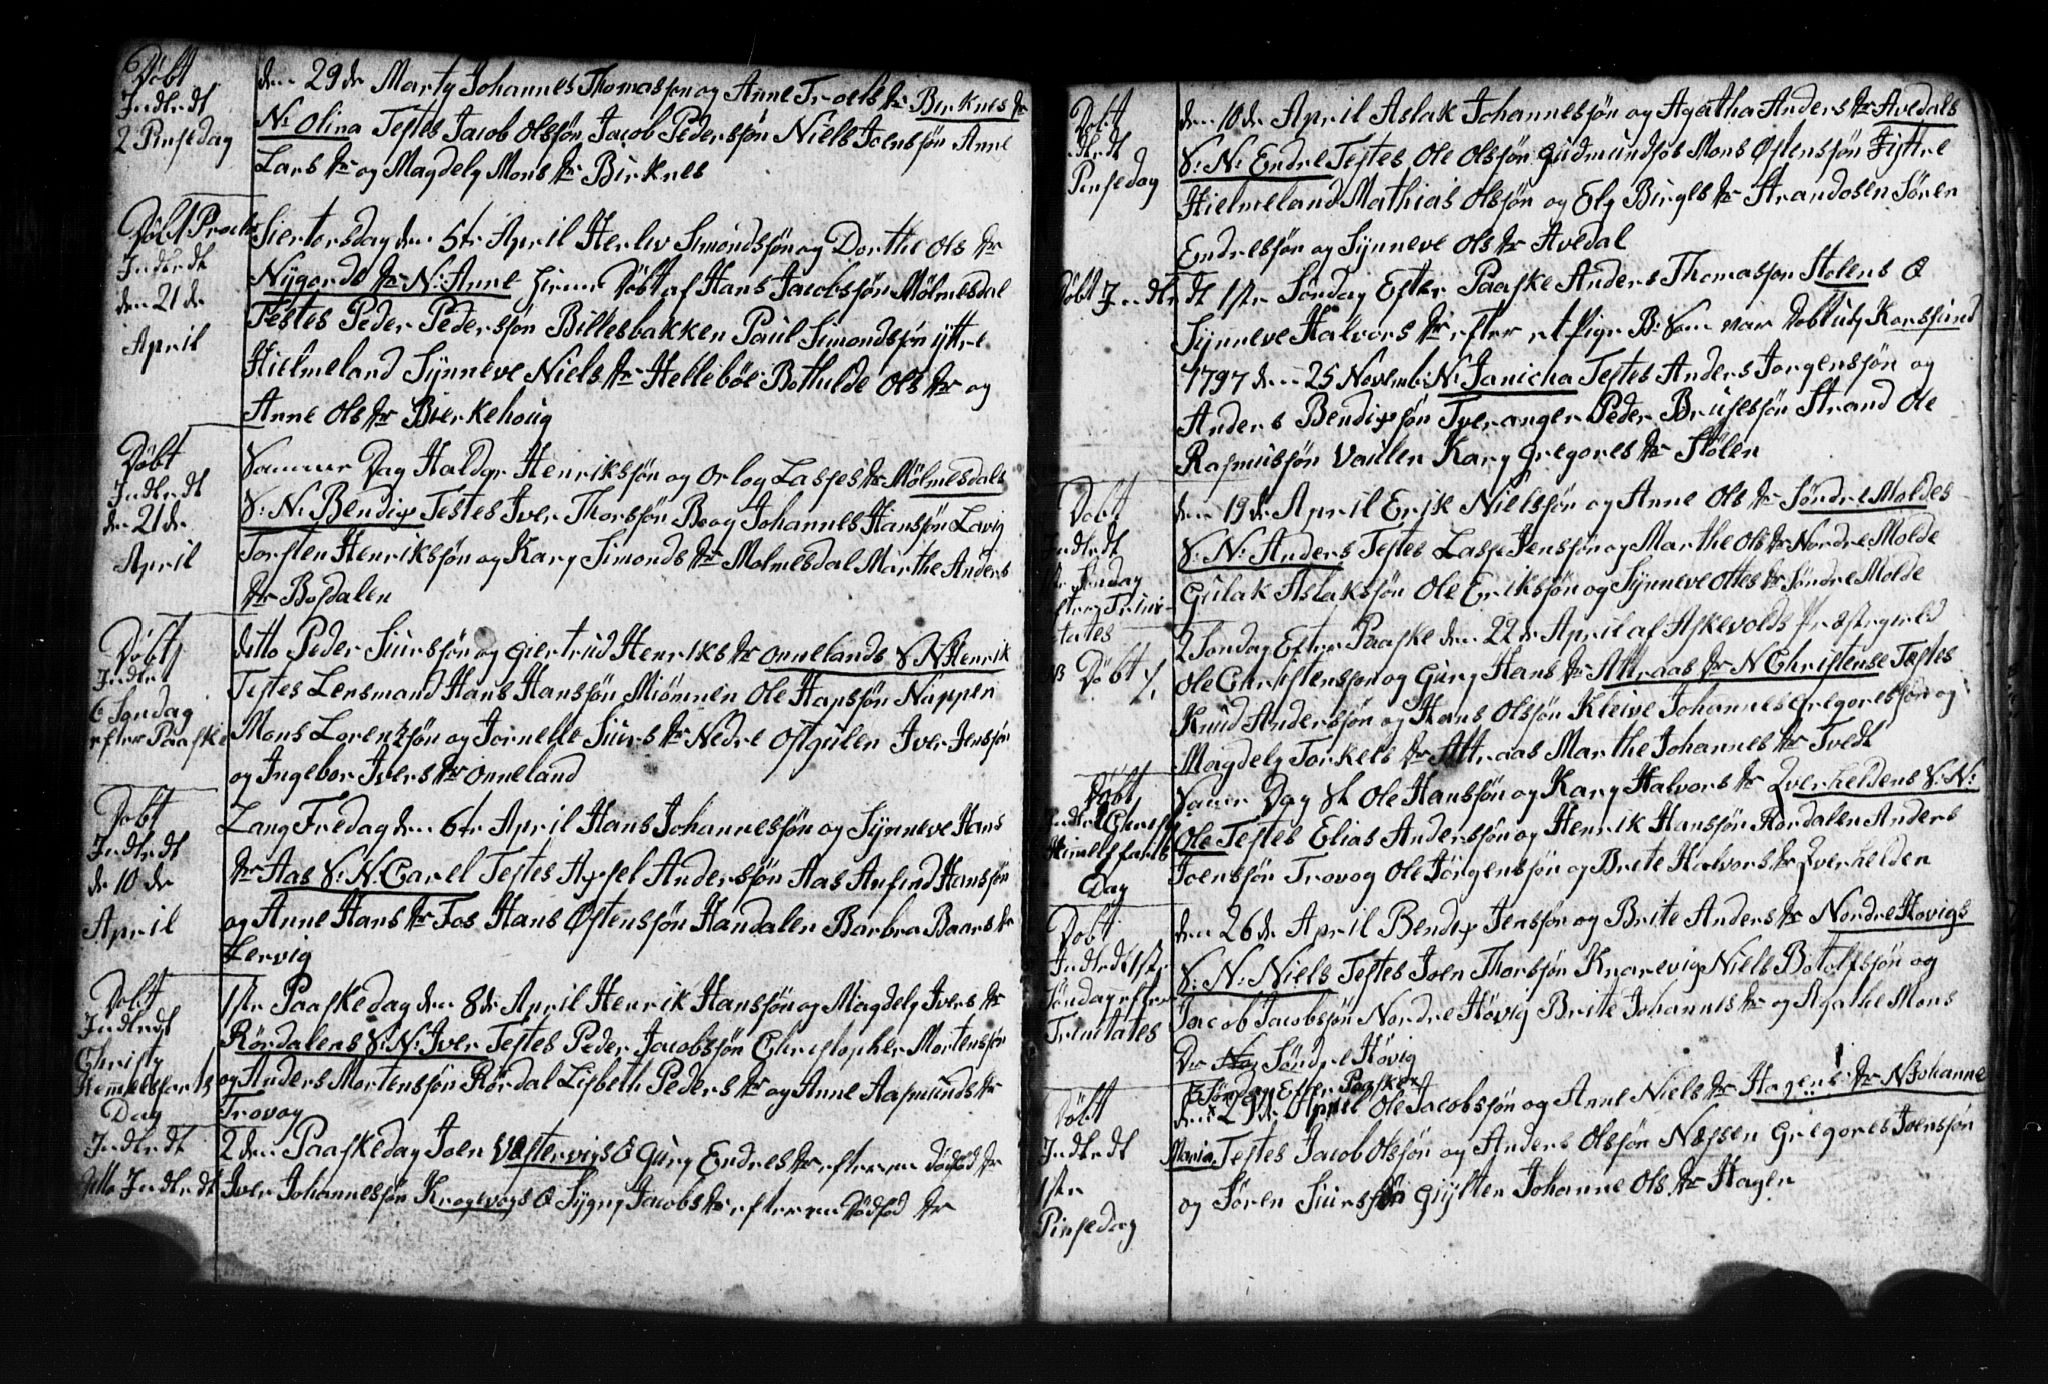 6
Døbt
Indledt
2 Pinsedag
den 29de Marty Johannes Thomasson og Anne Troels dr Birknes dr
N: Olina Testes Jacob Olssøn Jacob Pedersøn Niels Joensøn Anne
Lars dr og Magdely Mons dr Birknes
Døbt Præste
Indledt
den 21de
April
Siertorsdag den 5te April Herlev Simondssøn og Dorthe Ols dr
Nygords dr N: Anne hiemme Døbt af Hans Jacobssøn Mølmesdal
Testes Peder Pedersøn Billesbakken Paul Simondssøn yttre
Hielmeland Synneve Niels dr Hellebøe Bothilde Ols dr og
Anne Ols dr Birkehoug
Døbt
Indledt
den 21de
April
Samme Dag Haldor Henrikssøn og Orlog Lasses dr Mølmesdals
S: N: Bendix Testes Iver Thorsøn Boog Johannes Hanssøn Lavig
Torsten Henrikssøn og Kary Simonds dr Mølmesdal Marthe Anders
dr Bosdalen
Døbt
Indledt
6 Søndag
efter Paaske
ditto Peder Siurssøn og Giertrud Henriks dr Onnelands S N Henrik
Testes Lensmand Hans Hanssøn Miømnen Ole Hanssøn Nappen
Mons Lorentzsøn og Jornelle Siurs dr Nedre Ostgulen Iver Jensøn
og Ingebor Ivers dr Onneland
Døbt
Indledt
de 10de
April
Lang Fredag den 6te April Hans Johannessøn og Synneve Hans
dr Aas S: N: Carel Testes Axsel Anderssøn Aas Anfind Hanssøn
og Anne Hans dr Fos Hans Østenssøn Handalen Barbra Baars dr
Lervig
Døbt
Indledt
Christy
Hemmelsfarts
Dag
1ste Paaskedag den 8de April Henrik Hanssøn og Magdely Ivers dr
Rørdalens S: N: Iver Testes Peder Jacobssøn Christopher Mortensøn
og Anders Mortensøn Rørdal Lisbeth Peders dr og Anne Aasmunds dr
Trovog
Indledt
2den Paaskedag Joen Vestervigs Q Gury Endres dr efter en dødfød dr
ditto Indledt
Iver Johannessøn Krogevogs Q Sygny Jacobs dr efter en Dødfød dr
Døbt
Indledt
Pinsedag
den 10de April Aslak Johannessøn og Agatha Anders dr Avedals
S: N: Endre Testes Ole Olssøn Gudmundsos Mons Østenssøn Jyttre
Hielmeland Mathias Olssøn og Ely Birges dr Strandosen Søren
Endressøn og Synneve Ols dr Avedal
Døbt Indledt
1ste Søndag Efter Paaske Anders Thomasson Stolens Q
Synneve Halvors dr efter et Pige B: Som var Døbt udj Korssund
1797 den 25 Novemb: N: Janicha Testes Anders Jorgenssøn og
Anders Bendixsøn Tveranger Peder Brusessøn Strand Ole
Rasmussøn Vaulen Kary Gregores dr Stølen
Døbt
Indledt
Søndag
efter Trini-
tates
den 19de April Erik Nielssøn og Anne Ols dr Søndre Moldes
S: N: Anders Testes Lasse Jenssøn og Marthe Ols dr Nordre Molde
Gulak Aslakssøn Ole Erikssøn og Synneve Ottes dr Søndre Molde
Døbt
2 Søndag Efter Paaske den 22de April af Askevolds Præstegield
Ole Christenssøn og Gury Hans dr Attraas dr N Christense Testes
Knud Anderssøn og Hans Olssøn Kleive Johannes Gregoressøn og
Magdely Torkels dr Attraas Marthe Johannes dr Tvedt
Døbt
Indled Christi
Himmelfarts
Dag
Samme Dag Ole Hanssøn og Kary Halvors dr Qverheldens S: N:
Ole Testes Elias Anderssøn og Henrik Hanssøn Hordalen Anders
Joenssøn Trovog Ole Jørgenssøn og Brite Halvors dr Qverhelden
Døbt
Indledt 1ste
Søndag efter
Trinitates
den 26de April Bendix Jenssøn og Brite Anders dr Nordre Høvigs
S: N: Niels Testes Joen Thorssøn Knarevig Niels Botolfssøn og
Jacob Jacobssøn Nordre Høvig Brite Johannes dr og Agathe Mons
Dr Søndre Høvig
Døbt
Indledt
1ste
Pinsedag
3 Søndag Efter Paaske
den 29de April Ole Jacobssøn og Anne Niels dr Hagens dr N Johanne
Maria Testes Jacob Olssøn og Anders Olssøn Næssen Gregores Joenssøn
og Søren Siurssøn Gyjlten Johanne Ols dr Hagen